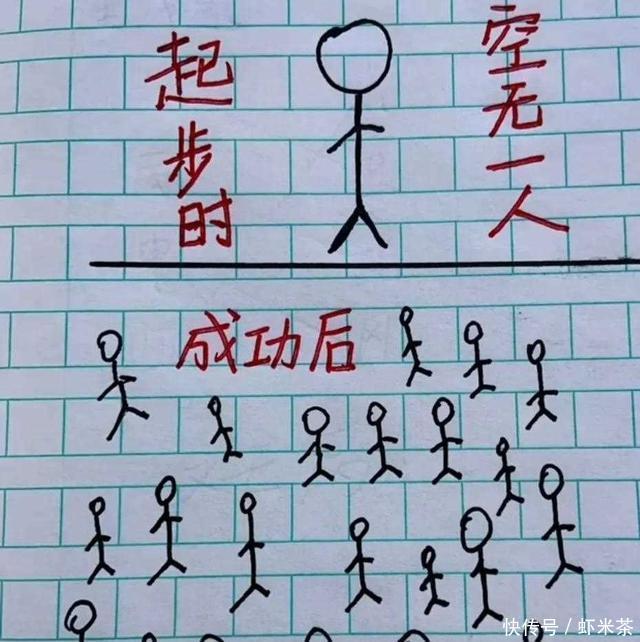 起步时
空无一人
成功后
快传号/虾米茶